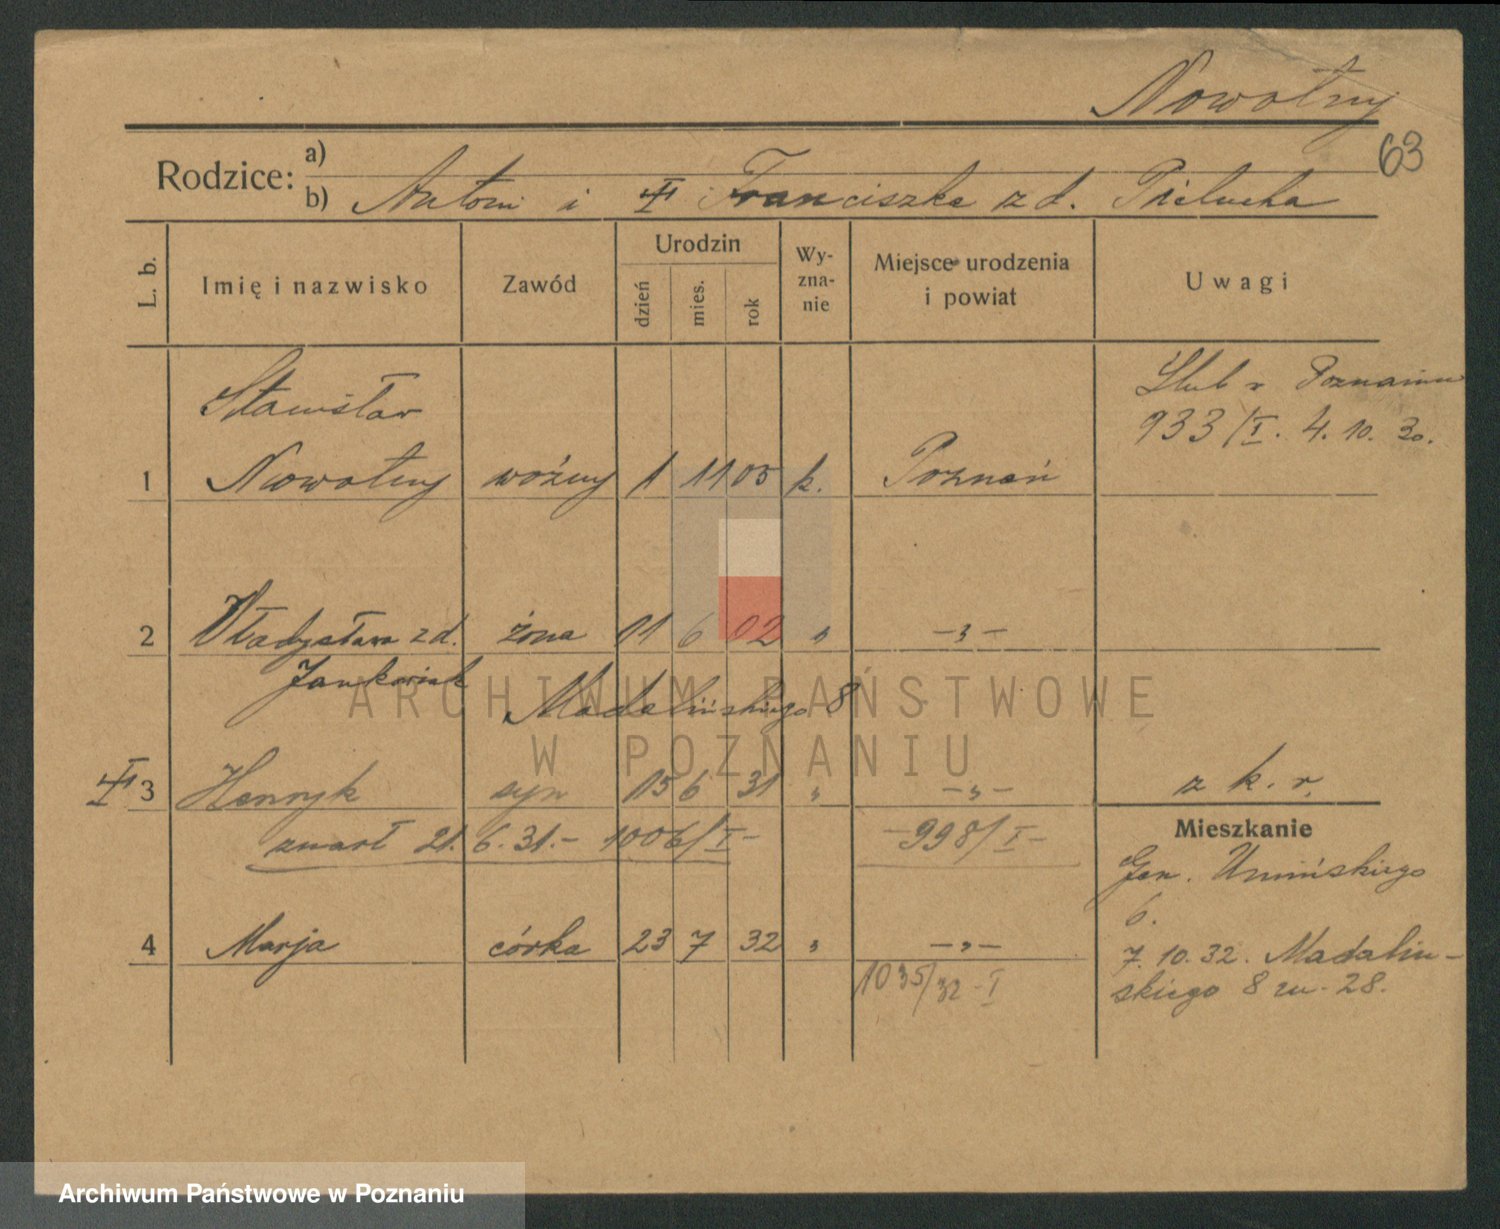 Nowotny
63
Rodzice:
a)
b) Antoni i Franciszka z d. Pielucha
L. b.
Imię i nazwisko
Zawód
Urodzin
dzień
mies.
rok
Wy-
zna-
nie
Miejsce urodzenia
i powiat
Uwagi
Stanisław
Ślub w Poznaniu
933/I. 4. 10. 30.
1 Nowotny woźny 1 11 05 k. Poznań
2 Władysława z d. żona 01 6 02 " -"-
Jankowiak
Madalińskiego 8
3 Henryk syn 15 6 31 " -"- z k. r.
zmarł 21. 6. 31.- 1006/I- -998/I-
Mieszkanie
Gen. Umińskiego
6.
4 Marja córka 23 7 32 " -"-
7. 10. 32. Madaliń-
skiego 8 m. 28.
1035/32-I
ARCHIWUM PAŃSTWOWE
W POZNANIU
Archiwum Państwowe w Poznaniu